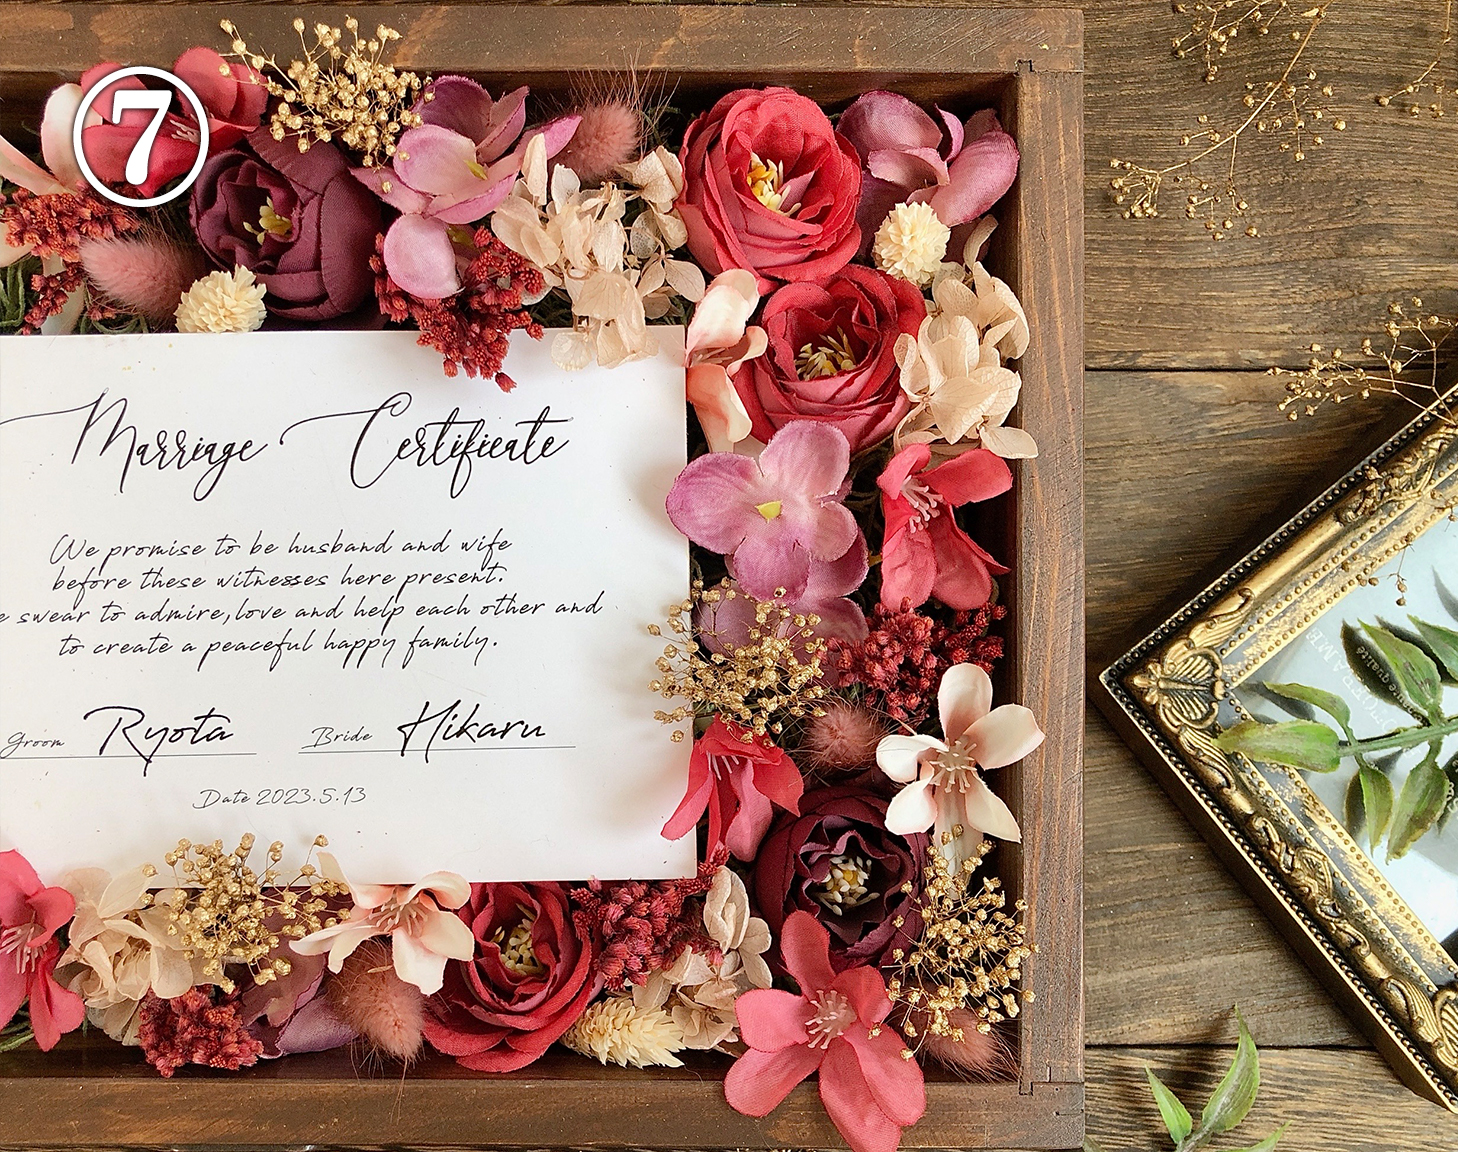 ⑦
Marriage Certificate
We promise to be husband and wife
before these witnesses here present.
e swear to admire, love and help each other and
to create a peaceful happy family.
Groom Ryota Bride Hikaru
Date 2023.5.13